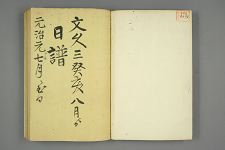 文久三癸亥八月ゟ
日譜
元治元七月マテ